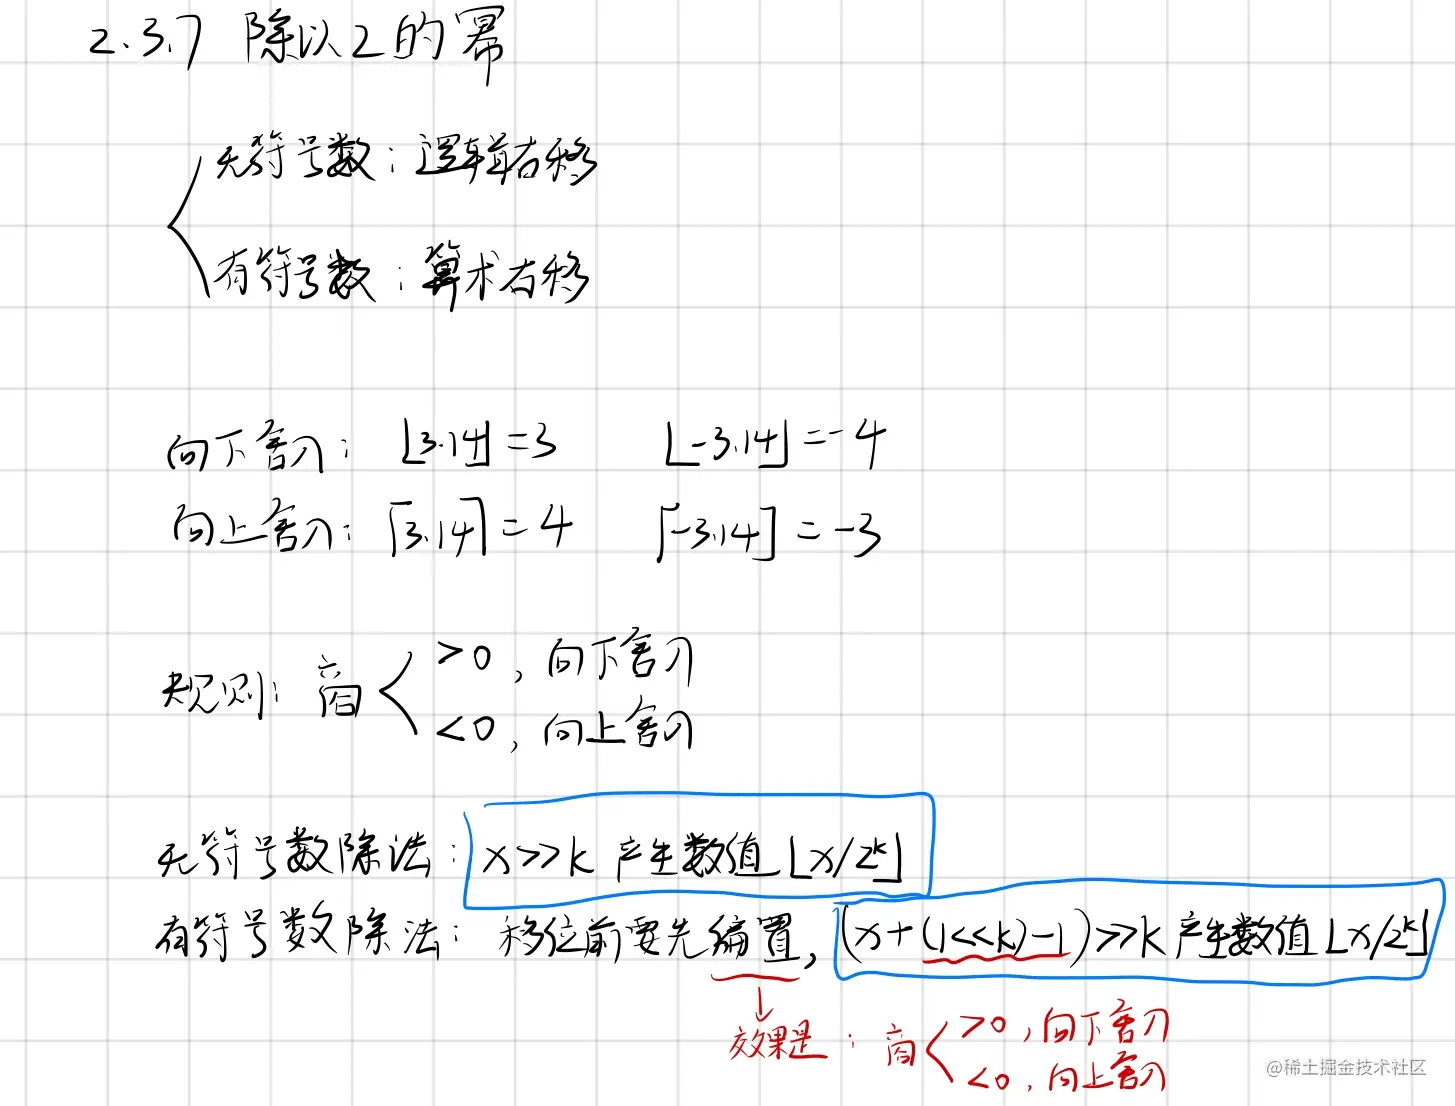 2.3.7 除以2的幂
无符号数：逻辑右移
有符号数：算术右移
向下舍入：⌊3.14⌋=3 ⌊-3.14⌋=-4
向上舍入：⌈3.14⌉=4 ⌈-3.14⌉=-3
规则：商
>0，向下舍入
<0，向上舍入
无符号数除法：x>>k 产生数值⌊x/2ᵏ⌋
有符号数除法：移位前要先偏置，(x+(1<<k)-1)>>k 产生数值⌊x/2ᵏ⌋
效果是：商
>0，向下舍入
<0，向上舍入
@稀土掘金技术社区